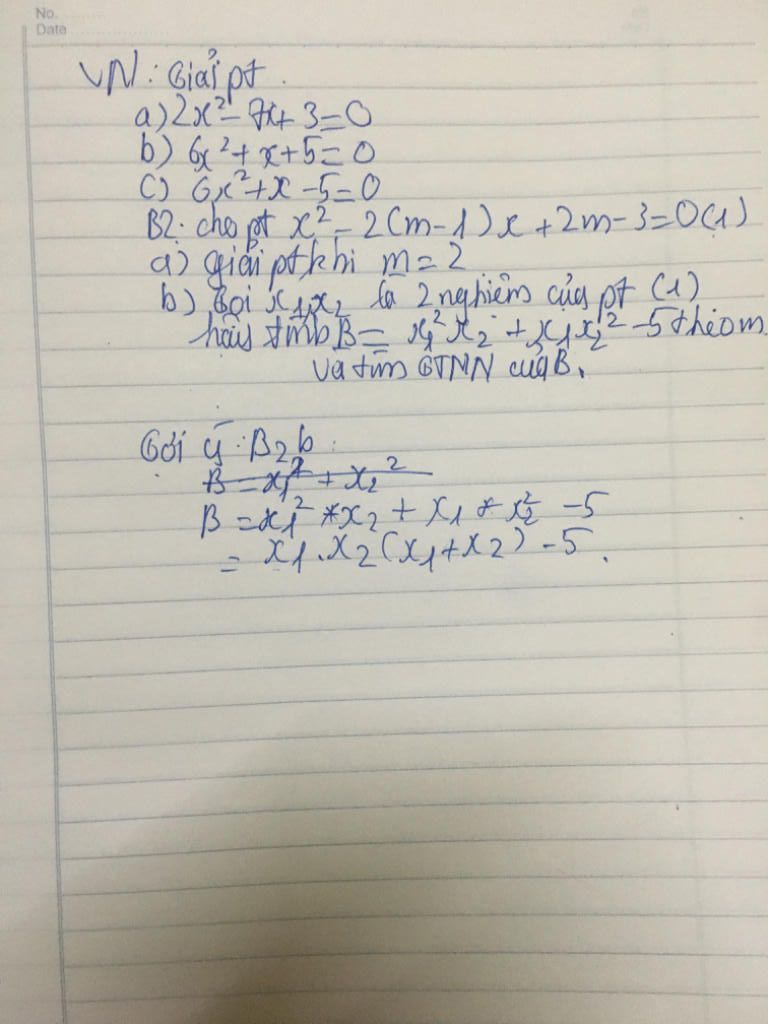 No.
Date
VN: Giải pt.
a) 2x² - 7x + 3 = 0
b) 6x² + x + 5 = 0
c) 6x² + x - 5 = 0
B2: cho pt x² - 2(m-1)x + 2m - 3 = 0 (1)
a) giải pt khi m = 2
b) Gọi x₁, x₂ là 2 nghiệm của pt (1)
hãy tính B = x₁²x₂ + x₁x₂² - 5 theo m
và tìm GTNN của B.
Gợi ý: B2b:
B = x₁² + x₂²
B = x₁² * x₂ + x₁ * x₂² - 5
= x₁.x₂(x₁+x₂) - 5.